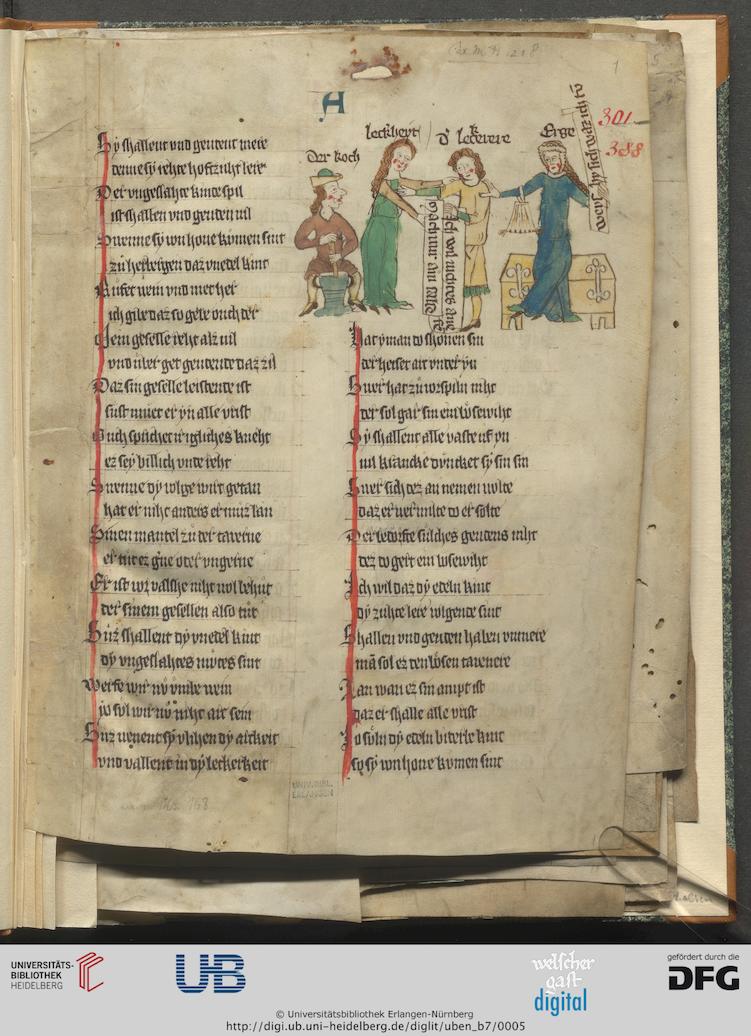 1
A
301
388
der koch
leckheyt
d' leckere
Erge
Sy shallent vnd geudent mere
denne sy rehte hofzuht lere
Der vngeslahte kinde spil
ist shallen vnd geuden vil
Swenne sy von houe kumen sint
zu herbergen daz vnedel kint
Rufet wein vnd met her
ich gibe daz so gebe ouch der
sein geselle
vnd
Daz sin geselle leistende ist
sust muet er yn alle vrist
Ouch sprichet kneht
ez sey billich vnde reht
Swenne dy volge wirt getan
hat er niht anders er muz lan
Sinen mantel zu der tauerne
er tut ez g'ne oder vngerne
Er ist vor valshe niht wol behut
der sinem gesellen also tut
Suz shallent dy vnedel kint
dy vngeslahtes mutes sint
Werfe wir nv vmbe wein
jo sol wir nv niht art sein
Suz wenent sy vlihen dy arkeit
vnd vallent in dy leckerkeit
Hat yman so shonen sin
der heiser art vnder yn
Swer hat zu vorspiln niht
der sol gar sin ein bosewiht
Sy shallent alle vaste vf yn
vil krancke duncket sy sin sin
Swer sich dez an nemen wolte
daz er wer milte do er solte
Der bedorfte sulches geudens niht
dez do gert ein bosewiht
Ich wil daz dy edeln kint
dy zuhte lere volgende sint
Shallen vnd geuden haben vnmere
man sol ez den bosen tauernere
Lan wan ez sin ampt ist
daz er shalle alle vrist
So suln dy edeln biderbe kint
so sy von houe kumen sint
UNIV. BIBL.
ERLANGEN
UNIVERSITÄTS-
BIBLIOTHEK
HEIDELBERG
UB
welscher
gast
digital
gefördert durch die
DFG
© Universitätsbibliothek Erlangen-Nürnberg
http://digi.ub.uni-heidelberg.de/diglit/uben_b7/0005